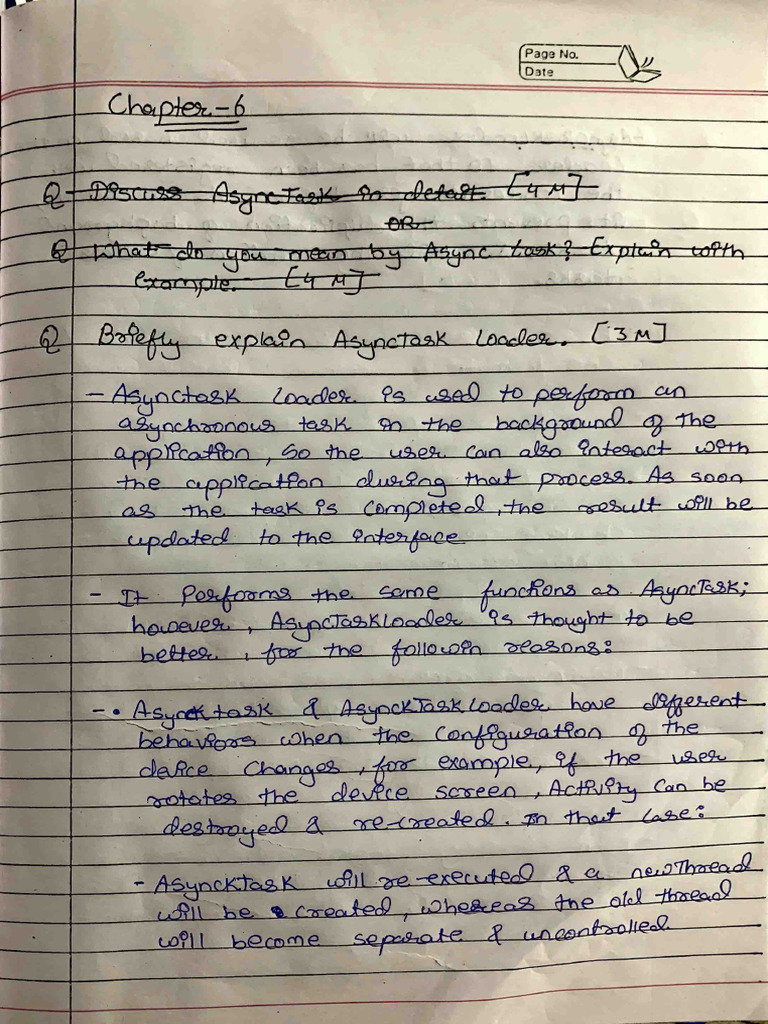 Page No.
Date
Chapter-6
Q Discuss AsyncTask in detail. [4M]
OR
Q What do you mean by Async task? Explain with
example. [4 M]
Q Briefly explain AsyncTask Loader. [3M]
- Asynctask Loader is used to perform an
asynchronous task in the background of the
application, so the user can also interact with
the application during that process. As soon
as the task is completed, the result will be
updated to the interface
- It Performs the same functions as AsyncTask;
however, AsyncTaskLoader is thought to be
better, for the followin reasons:
- • Asynck task & AsynckTaskLoader have different
behaviors when the configuration of the
device changes, for example, if the user
rotates the device screen, Activity can be
destroyed & re-created. In that case:
- AsynckTask will re-executed & a newThread
will be created, whereas the old thread
will become separate & uncontrolled.